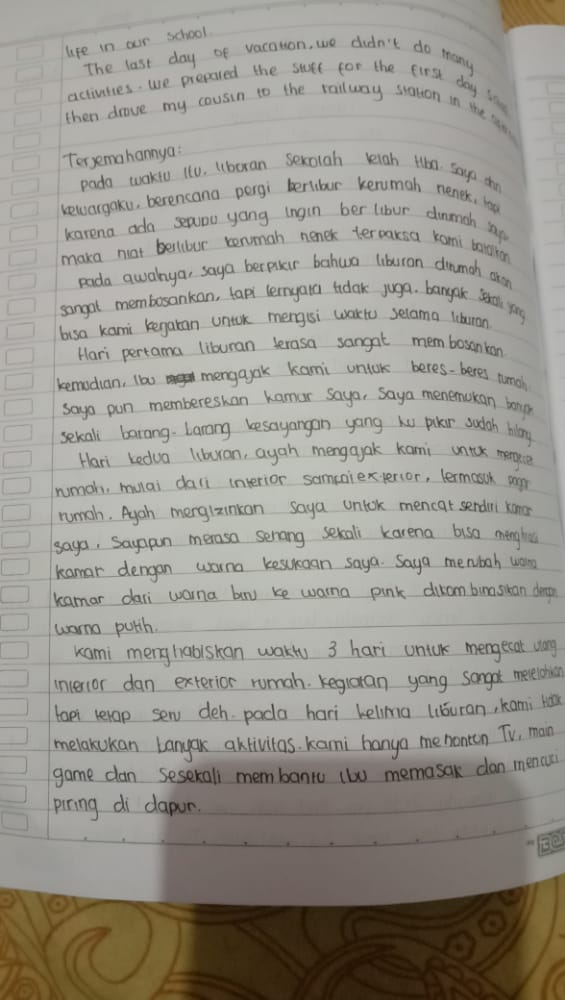 life in our school.
The last day of vacation, we didn't do many
activities. we prepared the stuff for the first day
then drove my cousin to the railway station in the
Terjemahannya:
pada waktu itu, liburan sekolah telah tiba. saya dan
keluargaku, berencana pergi berlibur kerumah nenek, tapi
karena ada sepupu yang ingin berlibur dirumah saya
maka niat berlibur kerumah nenek terpaksa kami batalkan
pada awalnya, saya berpikir bahwa liburan dirumah akan
sangat membosankan, tapi ternyata tidak juga. banyak sekali yang
bisa kami kerjakan untuk mengisi waktu selama liburan.
Hari pertama liburan terasa sangat membosankan
kemudian, ibu mengajak kami untuk beres-beres rumah.
Saya pun membereskan kamar saya, Saya menemukan banyak
sekali barang-barang kesayangan yang ku pikir sudah hilang
Hari kedua liburan, ayah mengajak kami untuk mengecet
rumah, mulai dari interior sampai exterior, termasuk pagar
rumah. Ayah mengizinkan saya untuk mencat sendiri kamar
saya. Sayapun merasa senang sekali karena bisa menghiasi
kamar dengan warna kesukaan saya. Saya merubah warna
kamar dari warna biru ke warna pink dikombinasikan dengan
warna putih.
Kami menghabiskan waktu 3 hari untuk mengecat ulang
interior dan exterior rumah. kegiatan yang sangat melelahkan
tapi tetap seru deh. pada hari kelima liburan, kami tidak
melakukan banyak aktivitas. kami hanya menonton Tv, main
game dan sesekali membantu ibu memasak dan mencuci
piring di dapur.